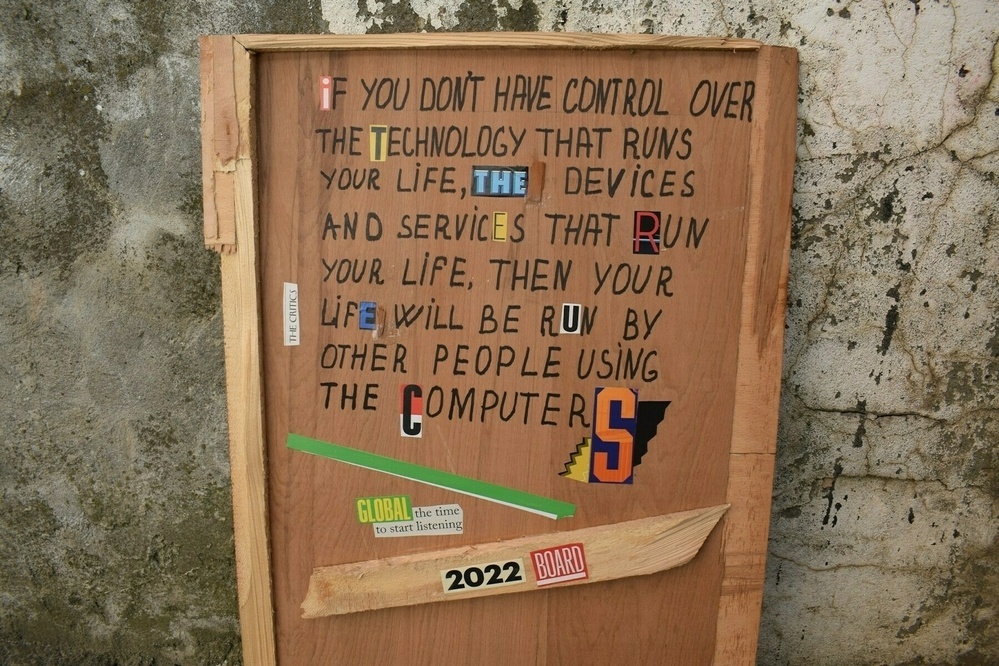 iF YOU DON'T HAVE CONTROL OVER
THE TECHNOLOGY THAT RUNS
YOUR LiFE, THE DEVICES
AND SERVICES THAT RUN
YOUR LiFE, THEN YOUR
LiFE WiLL BE RUN BY
OTHER PEOPLE USiNG
THE COMPUTERS
THE CRITICS
GLOBAL the time
to start listening
2022 BOARD